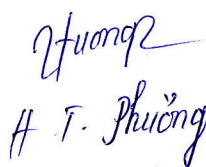 Huong
H T. Phường